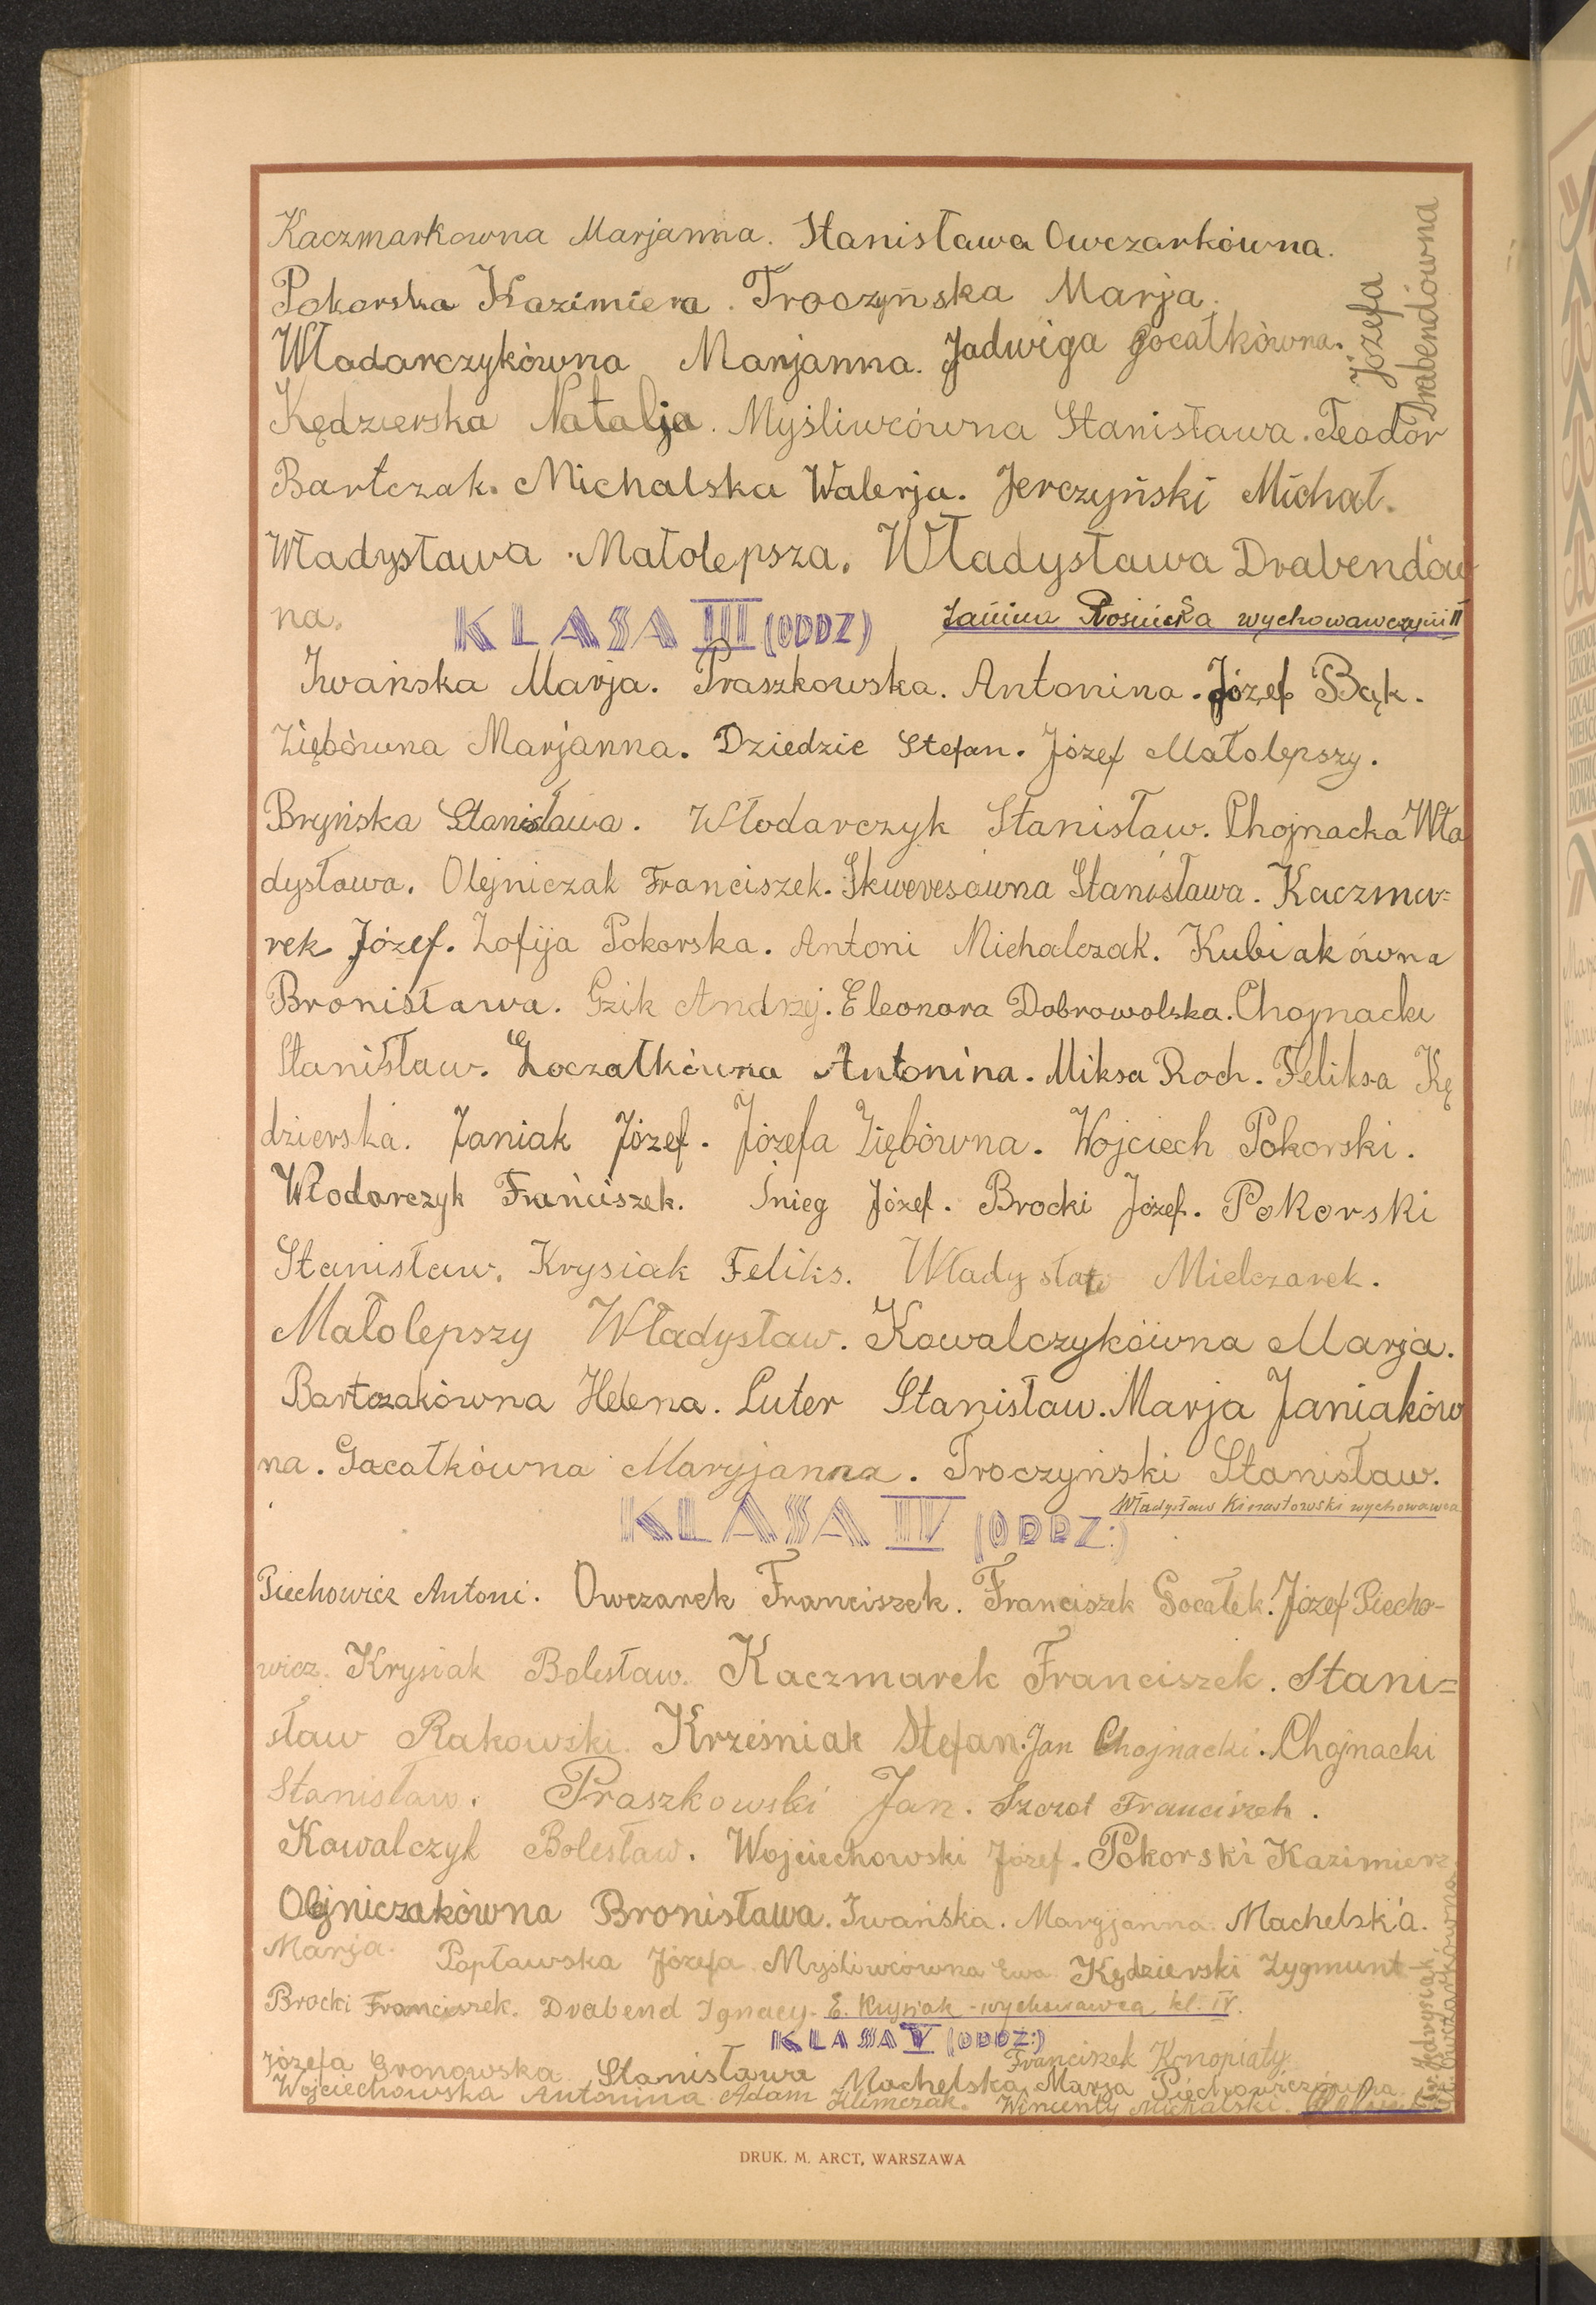 Kaczmarkowna Marjanna. Stanisława Owczarkówna.
Pokorska Kazimiera. Troczyńska Marja.
Józefa
Drabendówna
Władarczykówna Marjanna. Jadwiga Gocałkówna.
Kędzierska Natalja. Myśliwcówna Stanisława. Teodor
Bartczak. Michalska Walerja. Jerczyński Michał.
Władysława Małolepsza. Władysława Drabendów
na.
KLASA III (ODDZ) Janina Rosińska wychowawczyni II
Iwańska Marja. Praszkowska. Antonina. Józef Bąk.
Ziębówna Marjanna. Dziedzic Stefan. Józef Małolepszy.
Bryńska Stanisława. Włodarczyk Stanisław. Chojnacka Wła
dysława. Olejniczak Franciszek. Skweresówna Stanisława. Kaczma=
rek Józef. Zofija Pokorska. Antoni Michalczak. Kubiakówna
Bronisława. Gzik Andrzej. Eleonora Dobrowolska. Chojnacki
Stanisław. Goczałkówna Antonina. Miksa Roch. Feliksa Kę
dzierska. Janiak Józef. Józefa Ziębówna. Wojciech Pokorski.
Włodarczyk Franciszek. Śnieg Józef. Brocki Józef. Pokorski
Stanisław. Krysiak Feliks. Władysław Mielczarek.
Małolepszy Władysław. Kowalczykówna Marja.
Bartczakówna Helena. Luter Stanisław. Marja Janiaków
na. Gacałkówna Maryjanna. Troczyński Stanisław.
KLASA IV (ODDZ:) Władysław Kinastowski wychowawca
Piechowicz Antoni. Owczarek Franciszek. Franciszek Gocałek. Józef Piecho-
wicz. Krysiak Bolesław. Kaczmarek Franciszek. Stani=
sław Rakowski. Krześniak Stefan. Jan Chojnacki. Chojnacki
Stanisław. Praszkowski Jan. Szczot Franciszek.
Kowalczyk Bolesław. Wojciechowski Józef. Pokorski Kazimierz
Olejniczakówna Bronisława. Iwańska. Maryjanna. Machelska.
Marja. Popławska Józefa. Myśliwcówna Ewa. Kędzierski Zygmunt
Brocki Franciszek. Drabend Ignacy. E. Krysiak - wychowawca kl. IV.
KLASA V (ODDZ:)
Józefa Gronowska Stanisława Machelska Franciszek Konopiaty
Wojciechowska Antonina Adam Klimczak. Marja Piechowiczówna
Wincenty Michalski.
Jędrysiak
Owczarkówna
DRUK. M. ARCT, WARSZAWA